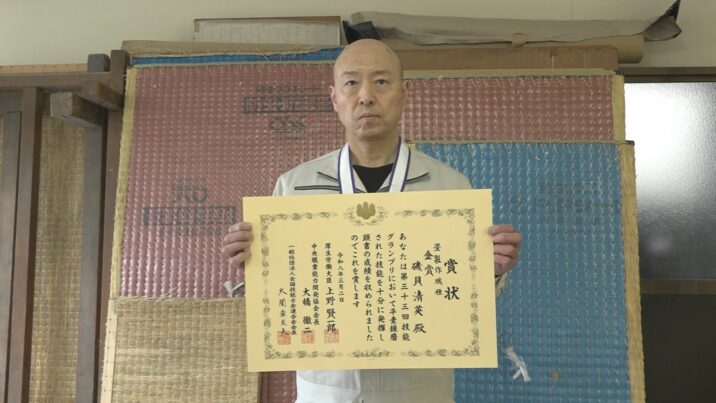 賞状
畳製作職種
金賞
磯貝清英殿
あなたは第三十三回技能
グランプリにおいて平素錬磨
された技能を十分に発揮し
頭書の成績を収められました
のでこれを賞します
令和八年三月二日
厚生労働大臣 上野賢一郎
中央職業能力開発協会会長
大橋徹二
一般社団法人全国技能士会連合会会長